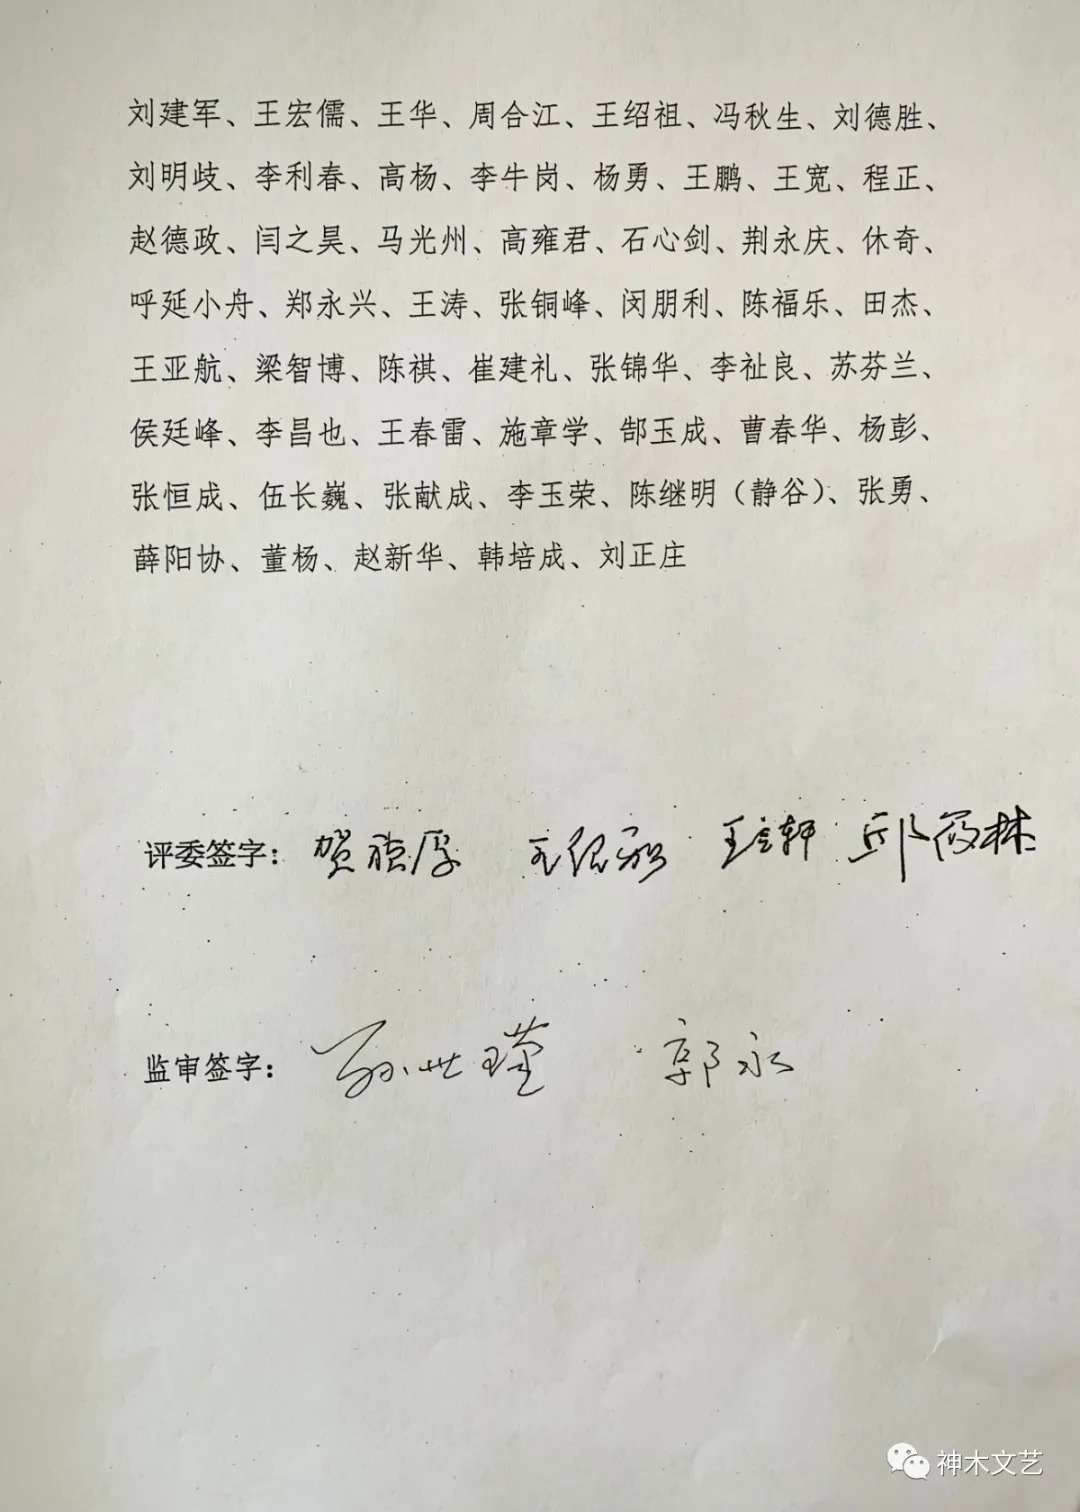 刘建军、王宏儒、王华、周合江、王绍祖、冯秋生、刘德胜、
刘明歧、李利春、高杨、李牛岗、杨勇、王鹏、王宽、程正、
赵德政、闫之昊、马光州、高雍君、石心剑、荆永庆、休奇、
呼延小舟、郑永兴、王涛、张铜峰、闵朋利、陈福乐、田杰、
王亚航、梁智博、陈祺、崔建礼、张锦华、李祉良、苏芬兰、
侯廷峰、李昌也、王春雷、施章学、郜玉成、曹春华、杨彭、
张恒成、伍长巍、张献成、李玉荣、陈继明（静谷）、张勇、
薛阳协、董杨、赵新华、韩培成、刘正庄
评委签字：贺 王 王立轩 邱
监审签字：孙世瑾 郭永
神木文艺